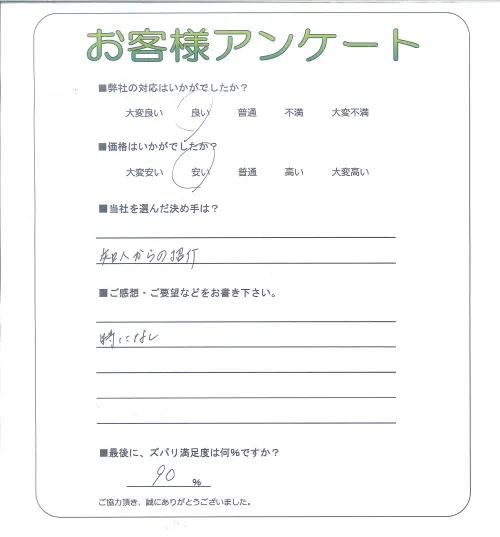 お客様アンケート
■弊社の対応はいかがでしたか？
大変良い 良い 普通 不満 大変不満
■価格はいかがでしたか？
大変安い 安い 普通 高い 大変高い
■当社を選んだ決め手は？
知人からの紹介
■ご感想・ご要望などをお書き下さい。
特になし
■最後に、ズバリ満足度は何%ですか？
90 %
ご協力頂き、誠にありがとうございました。